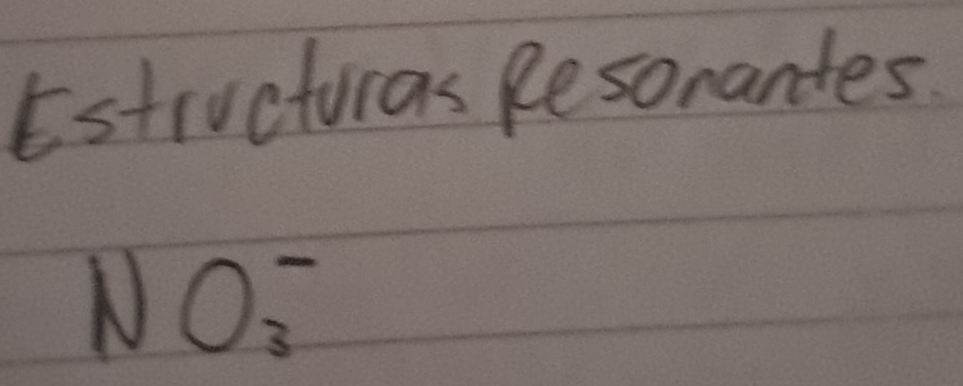 Estructuras Resonantes.
NO₃⁻